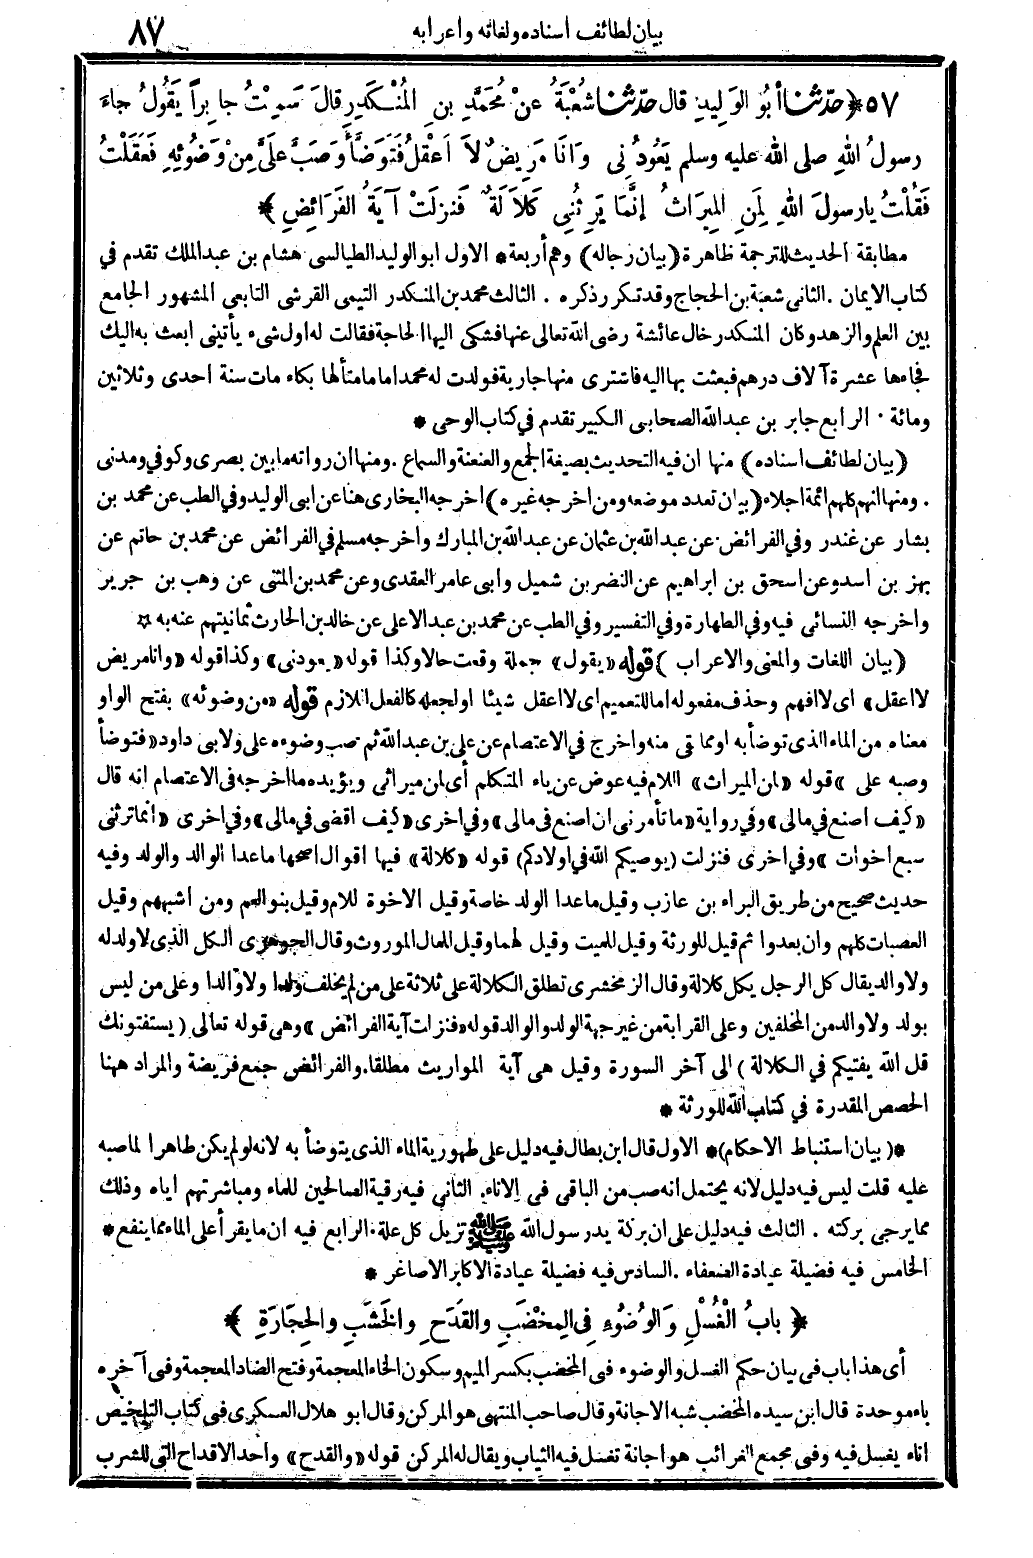 بيان لطائف أسناده ولغاته واعرابه ٨٧
٥٧ ﴿ حدّثنا أَبُو الوَلِيدِ قال حدّثنا شُعْبَةُ عَنْ مُحَمَّدِ بنِ المُنْكَدِرِ قالَ سَمِعْتُ جابِراً يَقُولُ جاءَ
رسولُ اللهِ صلى الله عليه وسلم يَعُودُنِى وَانَا مَرِيضٌ لاَ اَعْقِلُ فَتَوَضَّأَ وَصَبَّ عَلَىَّ مِنْ وَضُوئِهِ فَعَقَلْتُ
فَقُلْتُ يارسولَ اللهِ لِمَنِ المِيرَاثُ إنَّمَا يَرِثُنِى كَلاَلَةٌ فَنزلَتْ آيَةُ الفَرَائِضِ ﴾
مطابقة الحديث للترجمة ظاهرة (بيان رجاله) وهم أربعة * الاول ابو الوليد الطيالسى هشام بن عبد الملك تقدم في
كتاب الايمان . الثانى شعبة بن الحجاج وقد تكرر ذكره . الثالث محمد بن المنكدر التيمى القرشى التابعى المشهور الجامع
بين العلم والزهد وكان المنكدر خال عائشة رضى الله تعالى عنها فشكى اليها الحاجة فقالت له اول شىء يأتينى ابعث به اليك
فجاءها عشرة آلاف درهم فبعثت بها اليه فاشترى منها جارية فولدت له محمدا اماما متألها بكاء مات سنة احدى وثلاثين
ومائة . الرابع جابر بن عبد الله الصحابى الكبير تقدم في كتاب الوحى *
(بيان لطائف اسناده) منها ان فيه التحديث بصيغة الجمع والعنعنة والسماع . ومنها ان رواته ما بين بصرى وكوفي ومدنى
. ومنها انهم كلهم ائمة اجلاء (بيان تعدد موضعه ومن اخرجه غيره) اخرجه البخارى هنا عن ابى الوليد وفي الطب عن محمد بن
بشار عن غندر وفي الفرائض عن عبد الله بن عثمان عن عبد الله بن المبارك واخرجه مسلم في الفرائض عن محمد بن حاتم عن
بهز بن اسد وعن اسحق بن ابراهيم عن النضر بن شميل وابى عامر العقدى وعن محمد بن المثنى عن وهب بن جرير
واخرجه النسائى فيه وفي الطهارة وفي التفسير وفي الطب عن محمد بن عبد الاعلى عن خالد بن الحارث ثمانيتهم عنه به *
(بيان اللغات والمعنى والاعراب) قوله «يقول» جملة وقعت حالا وكذا قوله «يعودنى» وكذا قوله «وانا مريض
لا اعقل» اى لا افهم وحذف مفعوله اما للتعميم اى لا اعقل شيئا او لجعله كالفعل اللازم قوله «من وضوئه» بفتح الواو
معناه من الماء الذى توضأ به او مما بقى منه واخرج في الاعتصام عن على بن عبد الله ثم صب وضوءه على ولابى داود «فتوضأ
وصبه على» قوله «لمن الميراث» اللام فيه عوض عن ياء المتكلم أى لمن ميراثى ويؤيده ما اخرجه فى الاعتصام انه قال
«كيف اصنع في مالى» وفي رواية «ما تأمرنى ان اصنع فى مالى» وفي اخرى «كيف اقضى في مالى» وفي اخرى «انما ترثنى
سبع اخوات» وفي اخرى فنزلت (يوصيكم الله في اولادكم) قوله «كلالة» فيها اقوال اصحها ما عدا الوالد والولد وفيه
حديث صحيح من طريق البراء بن عازب وقيل ما عدا الولد خاصة وقيل الاخوة للام وقيل بنو العم ومن اشبههم وقيل
العصبات كلهم وان بعدوا ثم قيل للورثة وقيل للميت وقيل لهما وقيل للمال الموروث وقال الجوهرى الكل الذى لا ولد له
ولا والد يقال كل الرجل يكل كلالة وقال الزمخشرى تطلق الكلالة على ثلاثة على من لم يخلف ولدا ولا والدا وعلى من ليس
بولد ولا والد من المخلفين وعلى القرابة من غير جهة الولد والوالد قوله «فنزلت آية الفرائض» وهى قوله تعالى (يستفتونك
قل الله يفتيكم في الكلالة) الى آخر السورة وقيل هى آية المواريث مطلقا. والفرائض جمع فريضة والمراد ههنا
الحصص المقدرة في كتاب الله للورثة *
*(بيان استنباط الاحكام)* الاول قال ابن بطال فيه دليل على طهورية الماء الذى يتوضأ به لانه لو لم يكن طاهرا لما صبه
عليه قلت ليس فيه دليل لانه يحتمل انه صب من الباقى فى الاناء. الثانى فيه رقية الصالحين للماء ومباشرتهم اياه وذلك
مما يرجى بركته . الثالث فيه دليل على ان بركة يد رسول الله ﷺ تزيل كل علة . الرابع فيه ان ما يقرأ على الماء مما ينفع *
الخامس فيه فضيلة عيادة الضعفاء . السادس فيه فضيلة عيادة الاكابر الاصاغر *
﴿ بابُ الْغُسْلِ وَالوُضُوءِ فى المِخْضَبِ والقَدَحِ والخَشَبِ والحِجَارَةِ ﴾
أى هذا باب فى بيان حكم الغسل والوضوء فى المخضب بكسر الميم وسكون الخاء المعجمة وفتح الضاد المعجمة وفى آخره
باء موحدة قال ابن سيده المخضب شبه الاجانة وقال صاحب المنتهى هو المركن وقال ابو هلال العسكرى فى كتاب التلخيص
اناء يغسل فيه وفى مجمع الغرائب هو اجانة تغسل فيه الثياب ويقال له المركن قوله «والقدح» واحد الاقداح التى للشرب